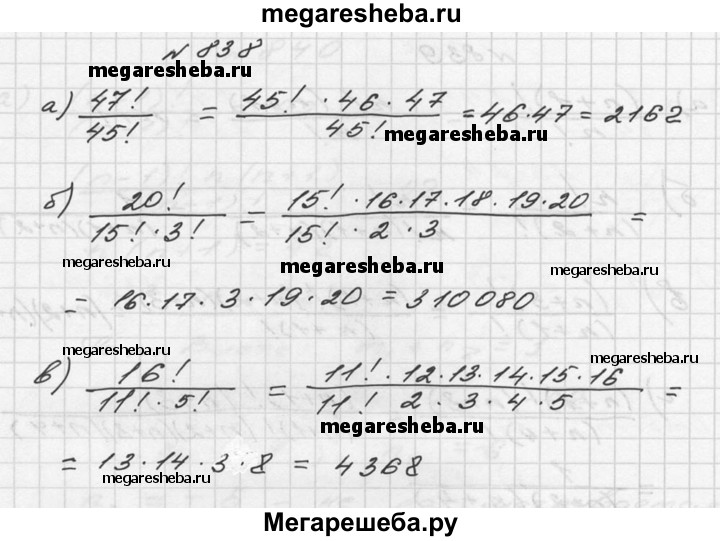 megaresheba.ru
№ 838
megaresheba.ru
а) 47! / 45! = 45! · 46 · 47 / 45! = 46 · 47 = 2162
megaresheba.ru
б) 20! / 15! · 3! = 15! · 16 · 17 · 18 · 19 · 20 / 15! · 2 · 3 =
megaresheba.ru megaresheba.ru megaresheba.ru
= 16 · 17 · 3 · 19 · 20 = 310080
megaresheba.ru megaresheba.ru
в) 16! / 11! · 5! = 11! · 12 · 13 · 14 · 15 · 16 / 11! 2 · 3 · 4 · 5 =
megaresheba.ru
= 13 · 14 · 3 · 8 = 4368
megaresheba.ru
Мегарешеба.ру